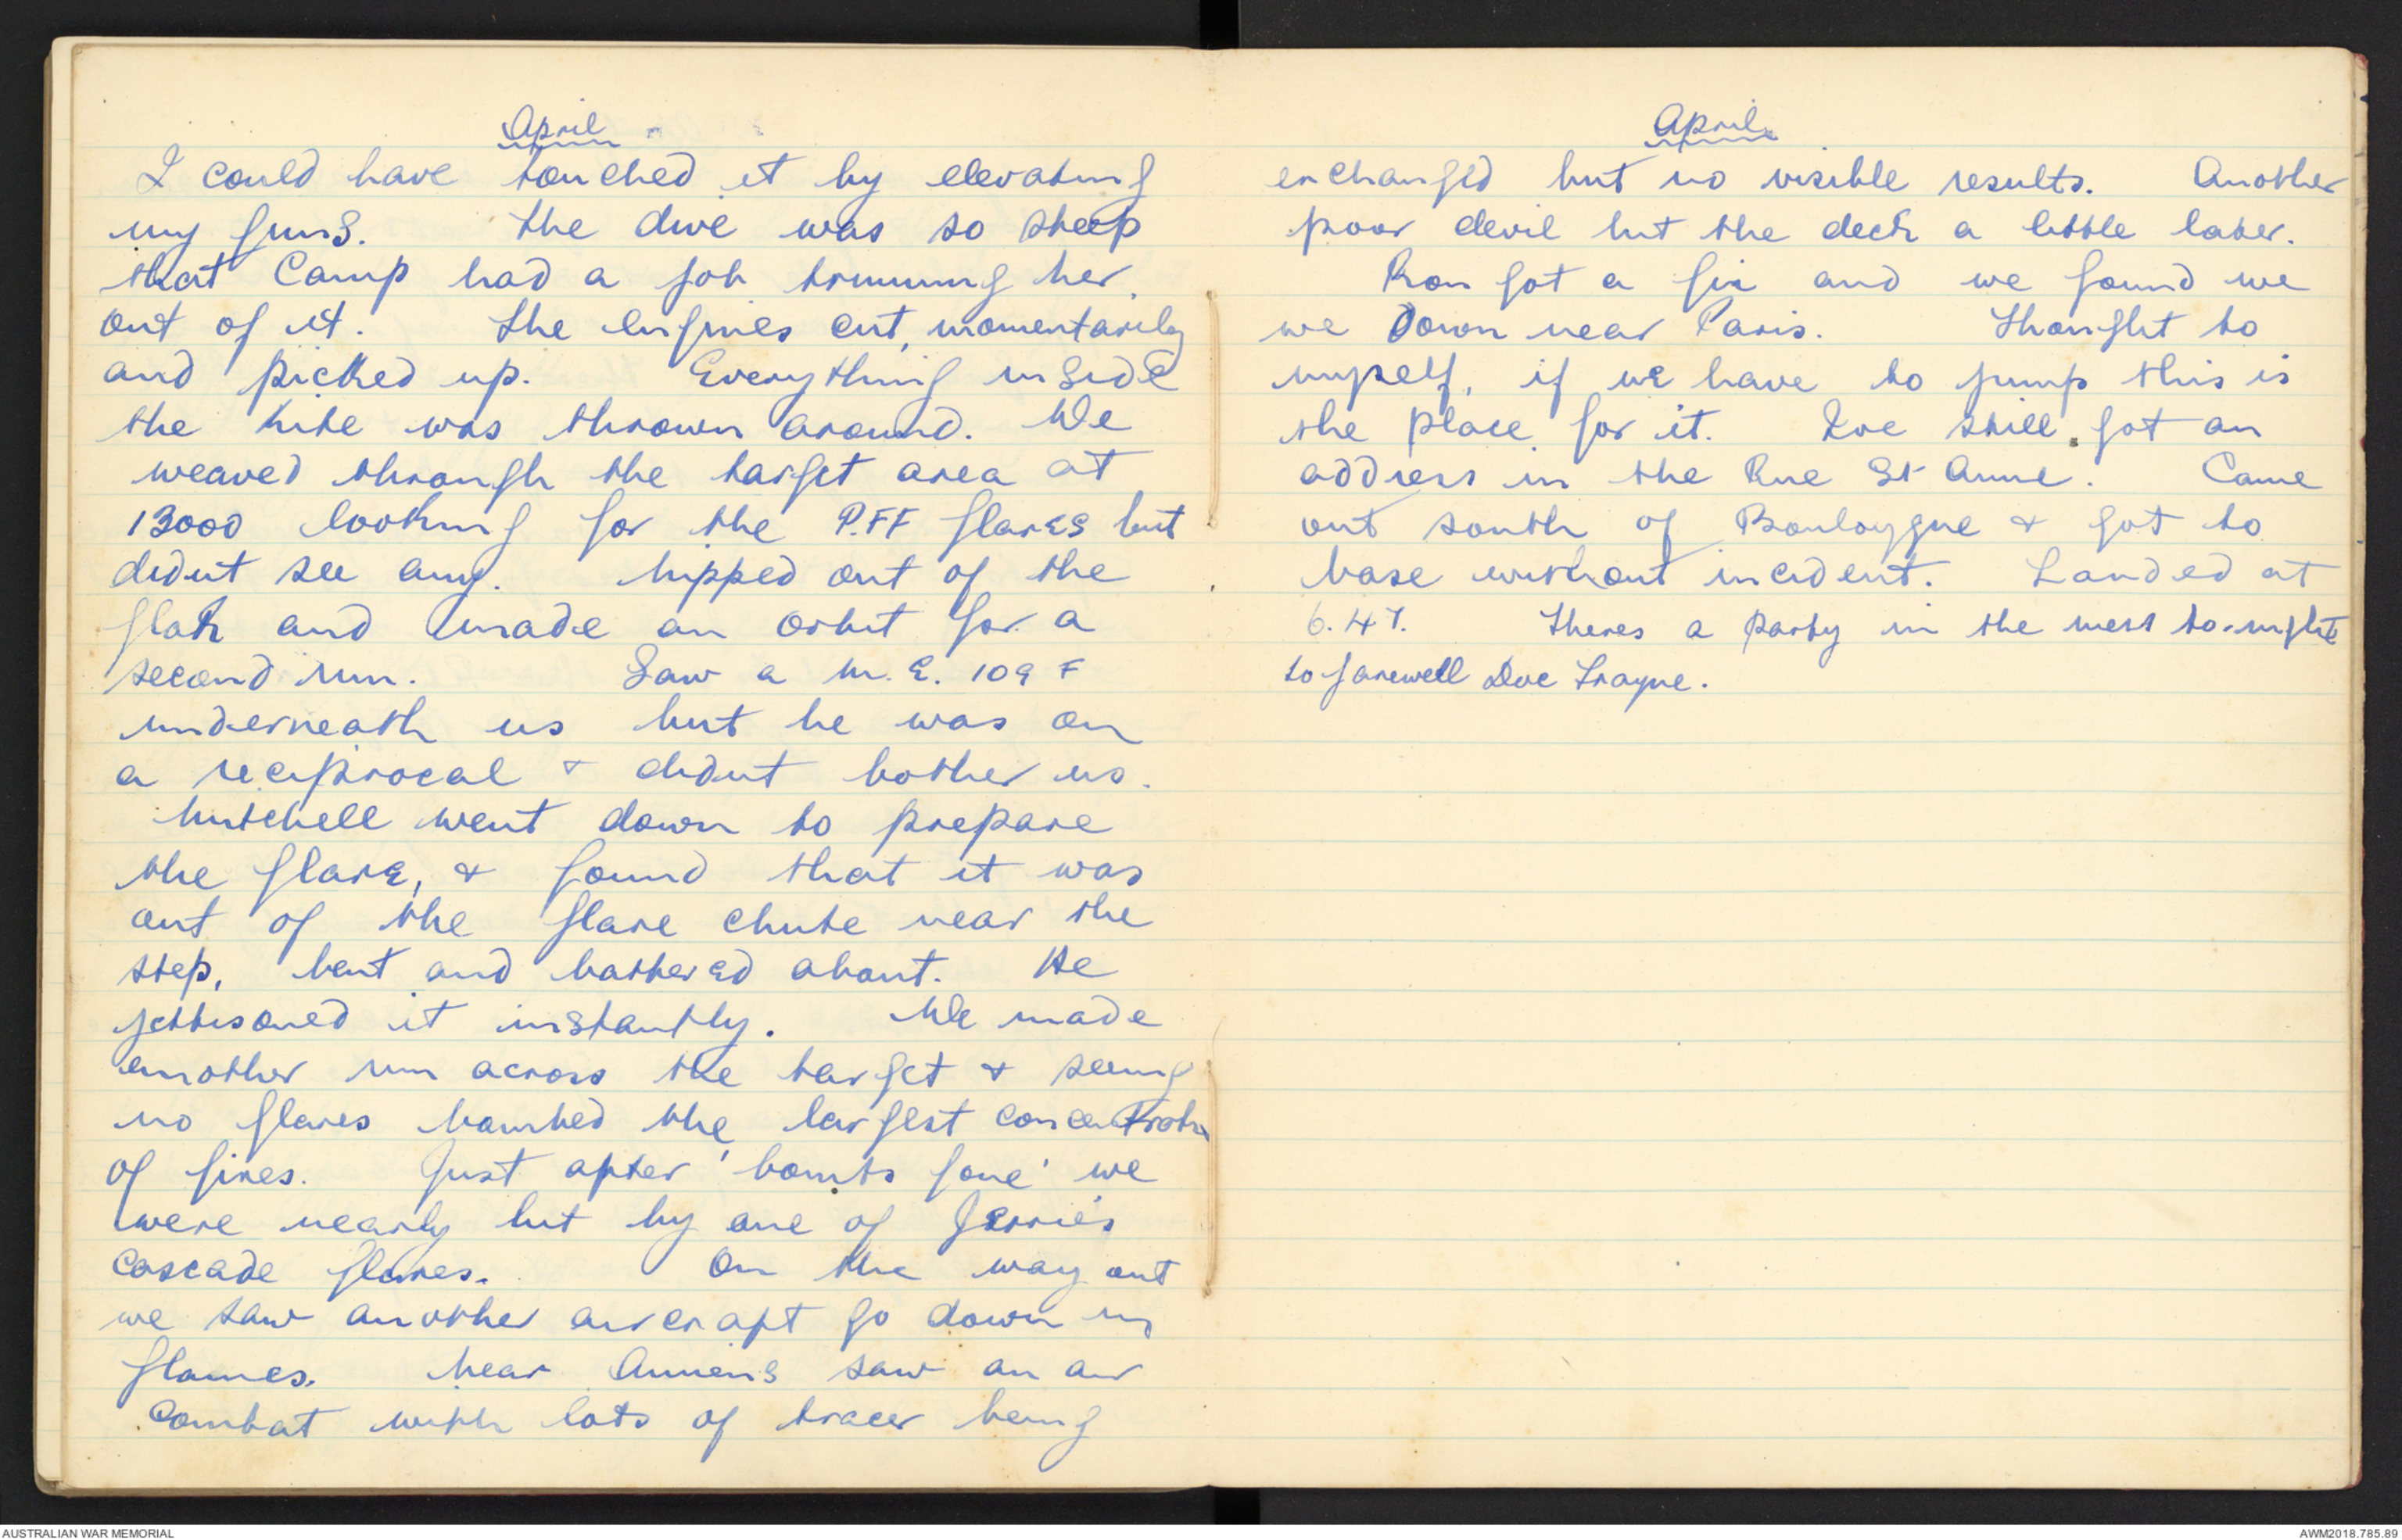 April
I could have touched it by elevating
my guns. The dive was so steep
that Camp had a job trimming her
out of it. The engines cut, momentarily
and picked up. Everything inside
the kite was thrown around. We
weaved through the target area at
13000 looking for the P.FF flares but
didnt see any. Nipped out of the
flak and made an orbit for a
second run. Saw a M.E. 109 F
underneath us but he was on
a reciprocal & didnt bother us.
Mitchell went down to prepare
the flare, & found that it was
out of the flare chute near the
step, bent and battered about. He
jettisoned it instantly. We made
another run across the target & seeing
no flares bombed the largest concentration
of fires. Just after 'bombs gone' we
were nearly hit by one of Jerrie's
cascade flares. On the way out
we saw another aircraft go down in
flames. Near Amiens saw an air
combat with lots of tracer being
April
exchanged but no visible results. Another
poor devil hit the deck a little later.
Ron got a fix and we found we
we down near Paris. Thought to
myself, if we have to jump this is
the place for it. Ive still got an
address in the Rue St Anne. Came
out south of Bouloygne & got to
base without incident. Landed at
6.47. Theres a party in the mess to-night
to farewell Doc
AUSTRALIAN WAR MEMORIAL
AWM2018.785.89